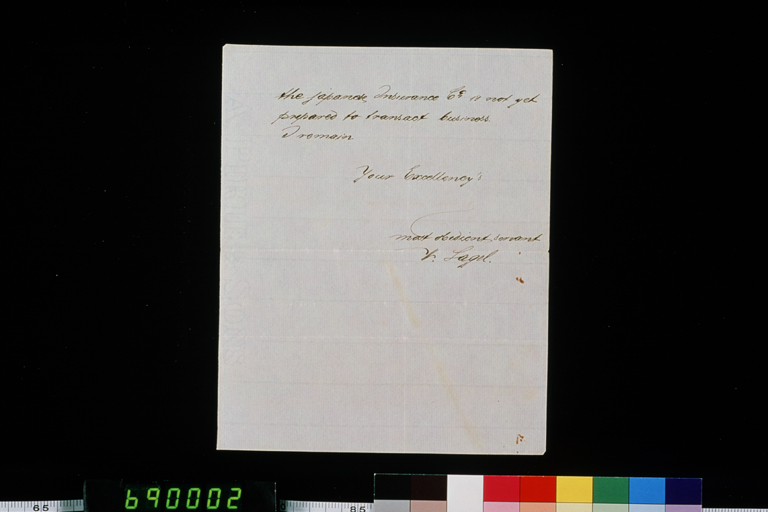 the japanese Insurance Co is not yet
prepared to transact business
I remain
Your Excellency's
most obedient servant
690002
65
85